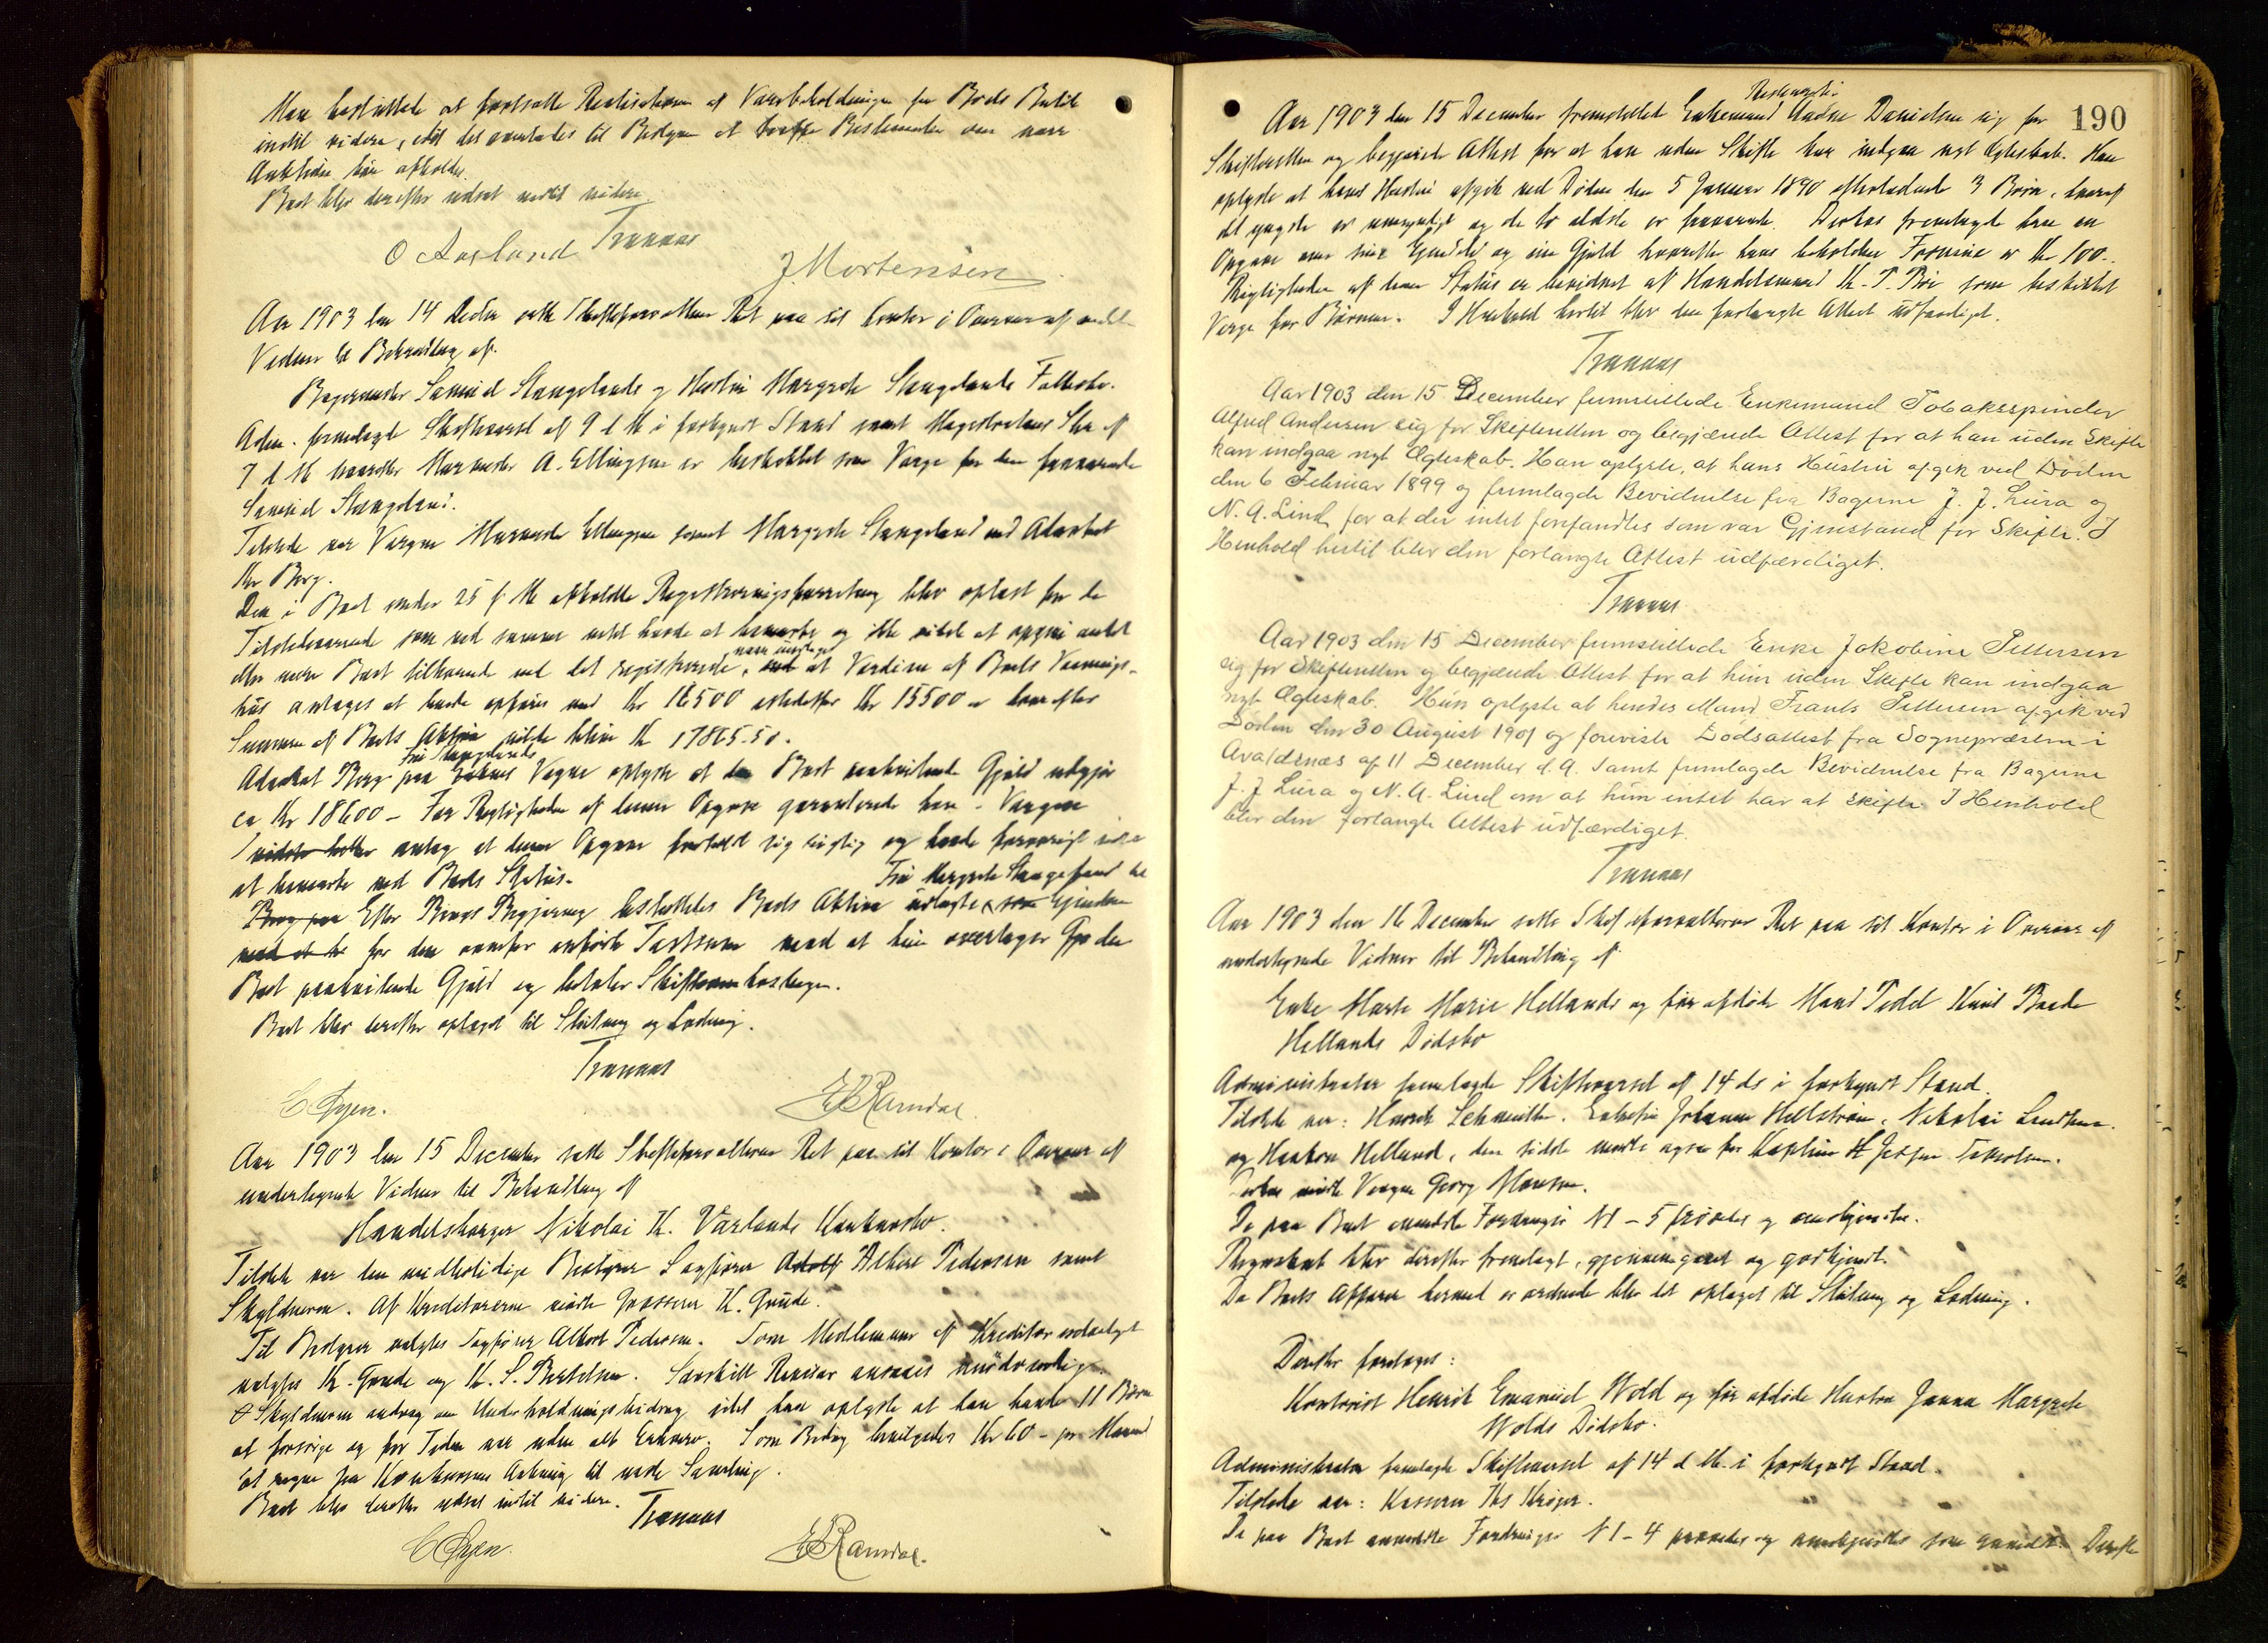 Man besluttede at fortsætte Realisationen af Varebeholdningen fra Boets Butik
indtil videre, idet det overlades til Bestyreren at træffe Bestemmelse om naar
Auktion bør afholdes.
Boet blev derefter udsat indtil videre.
Tranaas
O Aasland
J Mortensen
Aar 1903 den 14 Decbr satte Skifteforvalteren Ret paa sit Kontor i Overvær af undert.
Vidner til Behandling af
Bagermester Samuel Stangelands og Hustru Margrete Stangelands Fællesbo.
Adm. fremlagde Skiftevarsel af 9 d M i forkyndt Stand samt Magistratens Skr af
7 d M hvorefter Murmester A. Ellingsen er beskikket som Verge for den fraværende
Samuel Stangeland.
Tilstede var Vergen Murmester Ellingsen samt Margrete Stangeland med Advokat
Kr Berg.
Den i Boet under 25 f M afholdte Registreringsforretning blev oplæst for de
Tilstedeværende som ved samme intet havde at bemærke og ikke vidste at opgive andet
eller mere Boet tilhørende end det registrerede, at Værdien af Boets Vaanings-
hus antages at burde opføres med Kr 16500 istedetfor Kr 15500 - hvorefter
Summen af Boets Aktiva vilde blive Kr 17865.50.
Fru Stangelands
Advokat Berg paa Vegne oplyste at den Boet paahvilende Gjæld udgjør
ca Kr 18600 - For Rigtigheden af denne Opgave garanterede han. Vergen
antog at denne Opgave forholdt sig rigtig og havde forøvrigt intet
at bemærke ved Boets Status.
Fru Margrete Stangeland til
Efter Bergs Begjæring besluttedes Boets Aktiva udlagte som Eiendom
for den ovenfor anførte Taxtsum mod at hun overtager den
Boet paahvilende Gjæld og betaler Skifteomkostninger.
Boet blev derefter optaget til Slutning og Lodning.
Tranaas
C Øyen.
E Ramdal
Aar 1903 den 15 December satte Skifteforvalteren Ret paa sit Kontor i Overvær af
undertegnede Vidner til Behandling af
Handelsborger Nikolai K. Varlands Konkursbo.
Tilstede var den midlertidige Bestyrer Sagfører Albert Pedersen samt
Skyldneren. Af Kreditorerne mødte Grosserer K. Grude.
Til Bestyrer valgtes Sagfører Albert Pedersen. Som Medlemmer af Kreditorudvalget
valgtes K. Grude og K. S. Bertelsen. Særskilt Revisor ansaaes unødvendig.
Skyldneren androg om Underholdningsbidrag idet han oplyste at han havde 11 Børn
at forsørge og for Tiden var uden alt Erhverv. Som Bidrag bevilgedes Kr 60 - pr Maaned
at regne fra Konkursens Aabning til næste Samling.
Boet blev derefter udsat indtil videre.
Tranaas
C Øyen.
E Ramdal.
190
Aar 1903 den 15 December fremstillede Enkemand Aadne Danielsen sig for
Skifteretten og begjærede Attest for at han uden Skifte kan indgaa nyt Ægteskab. Han
oplyste at hans Hustru afgik ved Døden den 5 Januar 1890 efterladende 3 Børn, hvoraf
det yngste er umyndigt og de to ældste er fraværende. Derhos fremlagde han en
Opgave over sine Eiendele og sin Gjæld hvorefter hans beholdne Formue er Kr 100.
Rigtigheden af denne Status er bevidnet af Handelsmand K. T. Bøe som beskikket
Verge for Børnene. I Henhold hertil blev den forlangte Attest udfærdiget.
Tranaas
Aar 1903 den 15 December fremstillede Enkemand Tobaksspinder
Alfred Andersen sig for Skifteretten og begjærede Attest for at han uden Skifte
kan indgaa nyt Ægteskab. Han oplyste, at hans Hustru afgik ved Døden
den 6 Februar 1899 og fremlagde Bevidnelse fra Bagerne J. J. Lura og
N. A. Lind for at der intet forefandtes som var Gjenstand for Skifte. I
Henhold hertil blev den forlangte Attest udfærdiget.
Tranaas
Aar 1903 den 15 December fremstillede Enke Jakobine Pettersen
sig for Skifteretten og begjærede Attest for at hun uden Skifte kan indgaa
nyt Ægteskab. Hun oplyste at hendes Mand Frants Pettersen afgik ved
Døden den 30 August 1901 og foreviste Dødsattest fra Sognepræsten i
Avaldsnæs af 11 December d. A. samt fremlagde Bevidnelse fra Bagerne
J. J Lura og N. A. Lind om at hun intet har at skifte. I Henhold
blev den forlangte Attest udfærdiget.
Tranaas
Aar 1903 den 16 December satte Skifteforvalteren Ret paa sit Kontor i Overvær af
undertegnede Vidner til Behandling af
Enke Marte Marie Hellands og før afdøde Mand Peder Knud Baade
Hellands Dødsbo
Administrator fremlagde Skiftevarsel af 14 ds i forkyndt Stand.
Tilstede var: Henrik Schmidt. Enkefru Johanne Hellstrøm, Nikolai Lindtner.
og Haakon Helland, den sidste mødte ogsaa for Kaptein H Jesper Jakobsen.
Derhos mødte Vergen Georg Monsen.
De paa Boet anmeldte Fordringer N 1 - 5 prøvedes og anerkjendtes.
Regnskabet blev derefter fremlagt, gjennemgaaet og godkjendt.
Da Boets Affærer hermed er ordnede blev det optaget til Slutning og Lodning.
Derefter foretages:
Kontorist Henrik Emanuel Wold og før afdøde Hustru Janna Margrete
Wolds Dødsbo.
Administrator fremlagde Skiftevarsel af 14 d M. i forkyndt Stand.
Tilstede var: Kasserer Ths Krøger.
De paa Boet anmeldte Fordringer N 1 - 4 prøvedes og anerkjendtes som anmeldt. Derefter